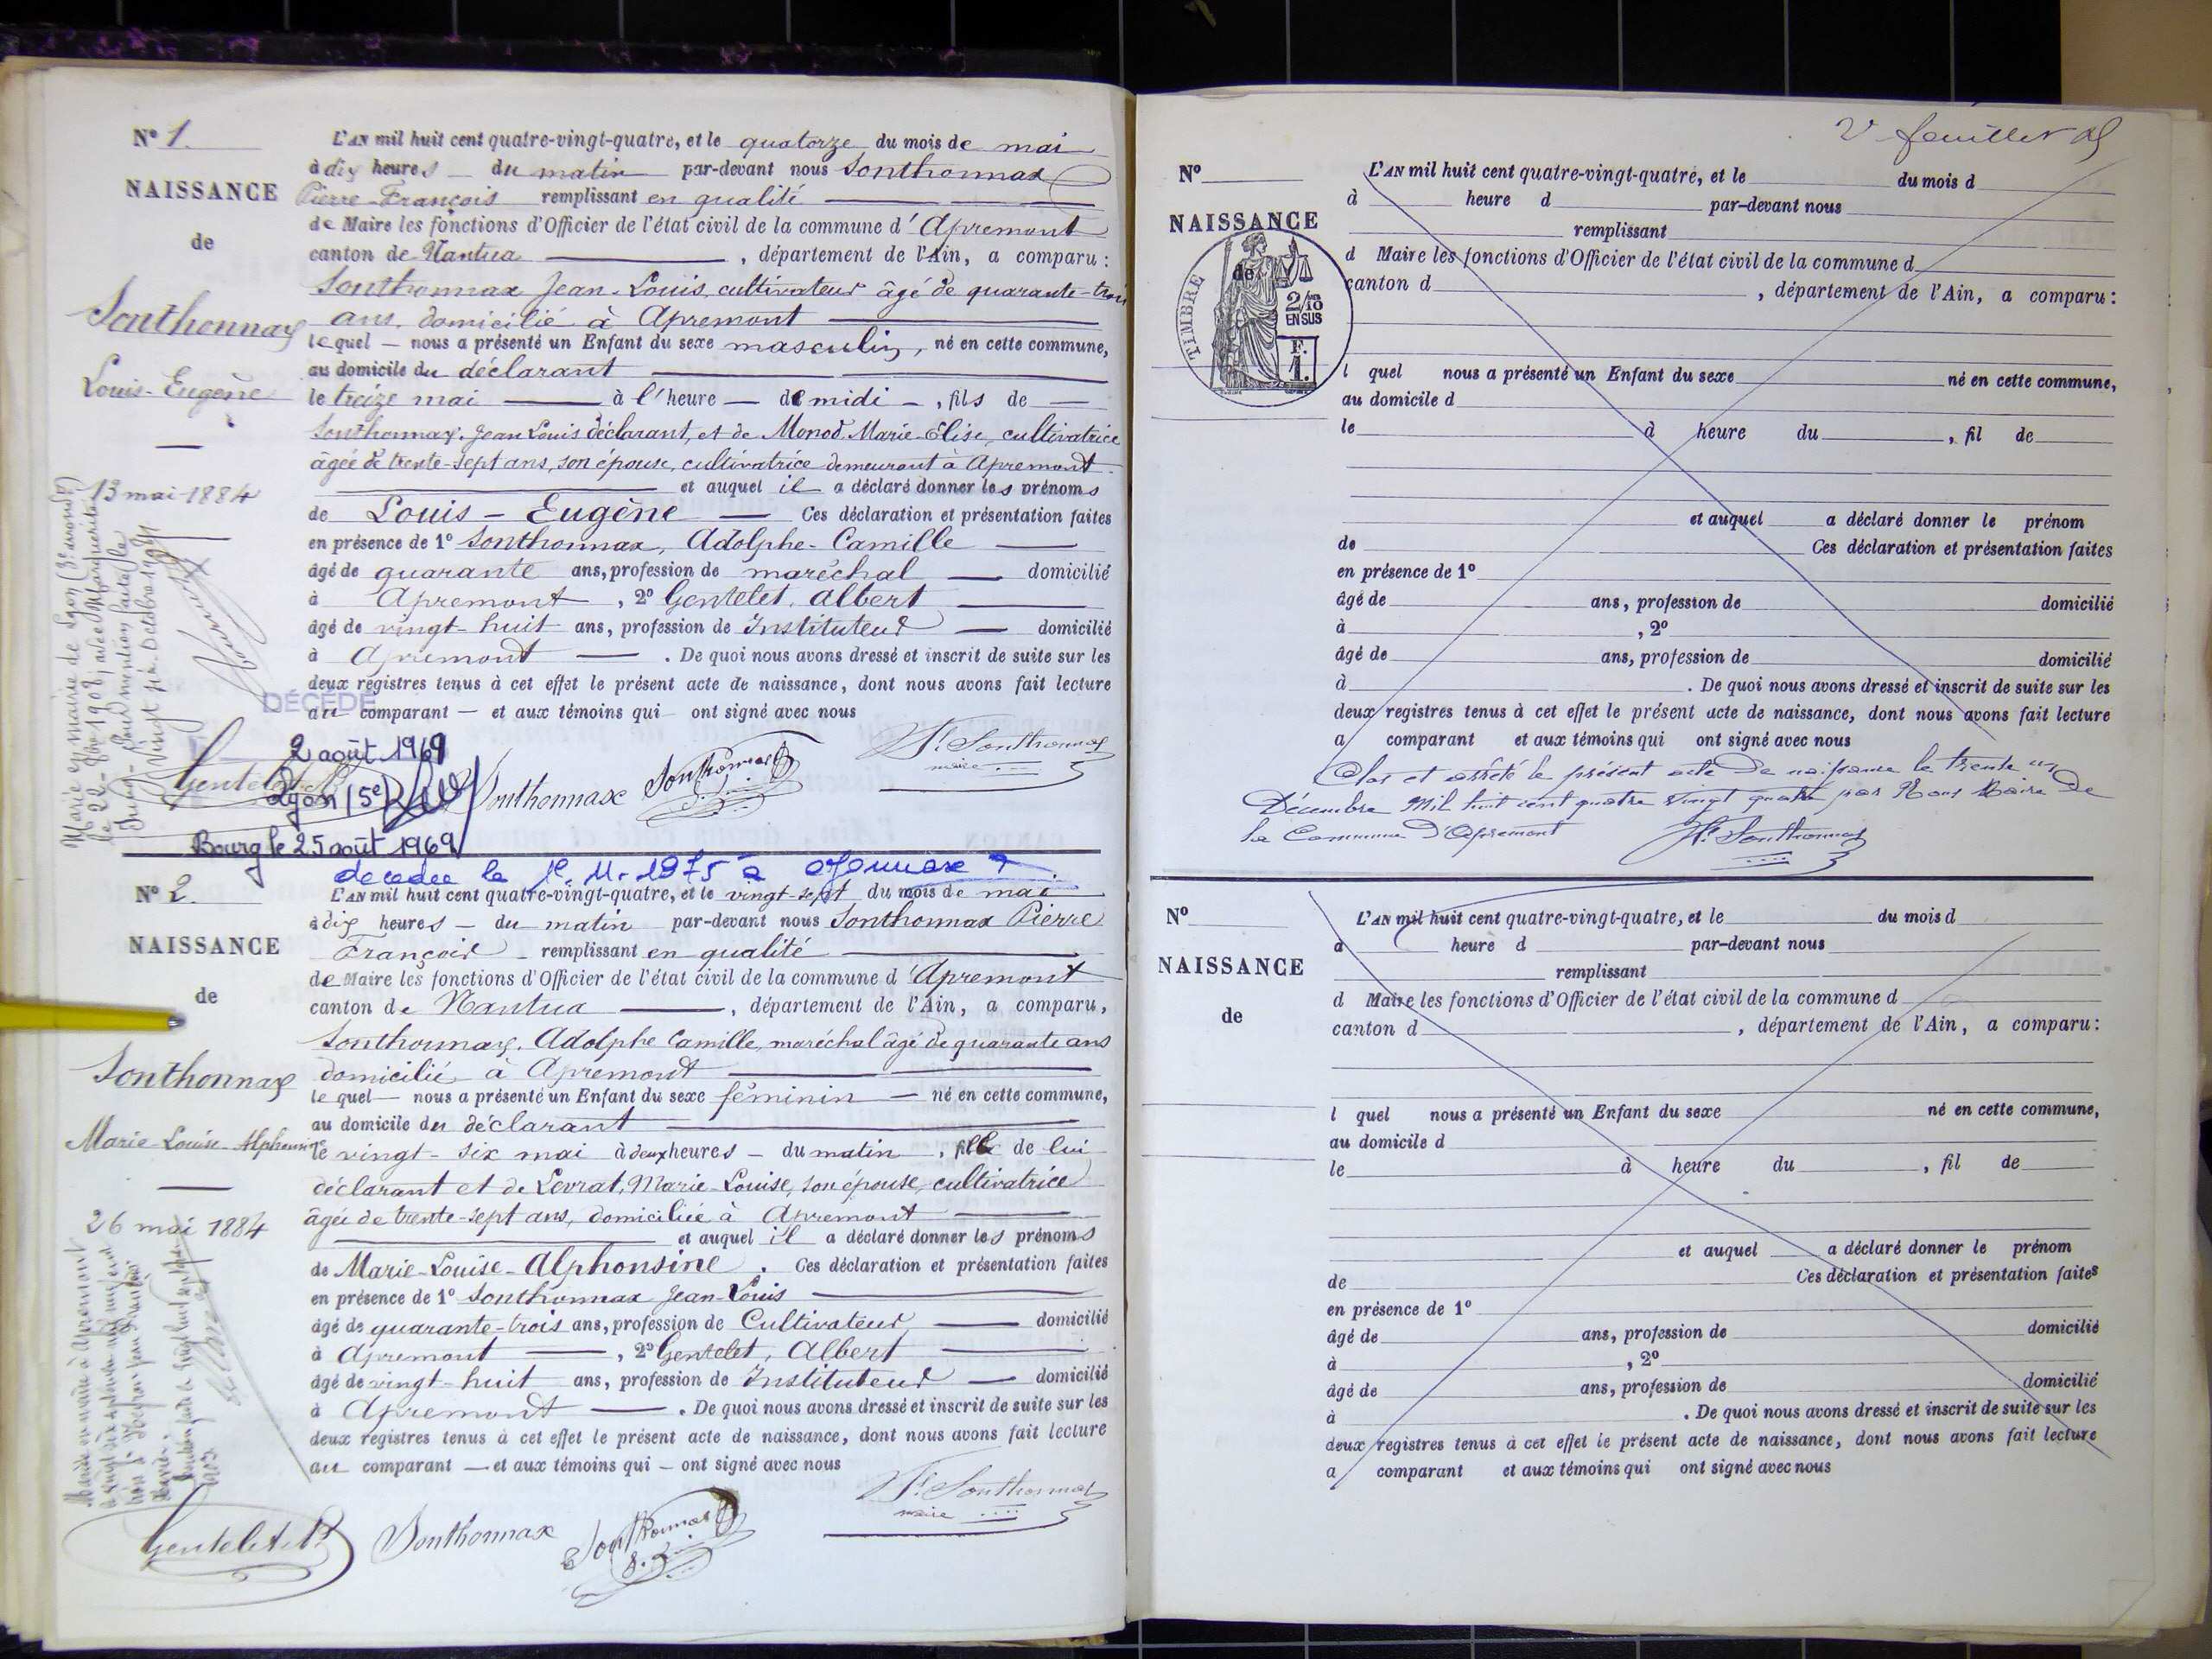 N° 1.
NAISSANCE
de
Sonthonnax
Louis-Eugène
13 mai 1884
L'AN mil huit cent quatre-vingt-quatre, et le quatorze du mois de mai
à dix heures du matin par-devant nous Sonthonnax
Pierre François remplissant en qualité
de Maire les fonctions d'Officier de l'état civil de la commune d'Apremont
canton de Nantua, département de l'Ain, a comparu :
Sonthonnax Jean-Louis, cultivateur âgé de quarante-trois
ans, domicilié à Apremont
lequel nous a présenté un Enfant du sexe masculin, né en cette commune,
au domicile du déclarant
le treize mai à l'heure de midi, fils de
Sonthonnax Jean Louis déclarant, et de Monod Marie-Elise, cultivatrice
âgée de trente-sept ans, son épouse, cultivatrice demeurant à Apremont
et auquel il a déclaré donner les prénoms
de Louis-Eugène Ces déclaration et présentation faites
en présence de 1° Sonthonnax, Adolphe-Camille
âgé de quarante ans, profession de maréchal domicilié
à Apremont, 2° Gentelet, Albert
âgé de vingt-huit ans, profession de Instituteur domicilié
à Apremont. De quoi nous avons dressé et inscrit de suite sur les
deux registres tenus à cet effet le présent acte de naissance, dont nous avons fait lecture
au comparant et aux témoins qui ont signé avec nous
Marié en mairie de Lyon (3e arrond)
le 22 1908, avec
mention faite le
vingt octobre
DÉCÉDÉ
2 août 1969
Lyon (5e)
Bourg le 25 août 1969
Gentelet Sonthonnax Sonthonnax
Sonthonnax
maire
décédée le 1e. 11. 1975 à Oyonnax
N° 2.
NAISSANCE
de
Sonthonnax
Marie-Louise-Alphonsine
26 mai 1884
L'AN mil huit cent quatre-vingt-quatre, et le vingt-sept du mois de mai
à dix heures du matin par-devant nous Sonthonnax Pierre
François remplissant en qualité
de Maire les fonctions d'Officier de l'état civil de la commune d'Apremont
canton de Nantua, département de l'Ain, a comparu,
Sonthonnax, Adolphe Camille, maréchal âgé de quarante ans
domicilié à Apremont
lequel nous a présenté un Enfant du sexe féminin né en cette commune,
au domicile du déclarant
le vingt-six mai à deux heures du matin, fille de lui
déclarant et de Levrat, Marie-Louise, son épouse, cultivatrice
âgée de trente-sept ans, domiciliée à Apremont
et auquel il a déclaré donner les prénoms
de Marie-Louise-Alphonsine. Ces déclaration et présentation faites
en présence de 1° Sonthonnax Jean-Louis
âgé de quarante-trois ans, profession de Cultivateur domicilié
à Apremont, 2° Gentelet, Albert
âgé de vingt-huit ans, profession de Instituteur domicilié
à Apremont. De quoi nous avons dressé et inscrit de suite sur les
deux registres tenus à cet effet le présent acte de naissance, dont nous avons fait lecture
au comparant et aux témoins qui ont signé avec nous
à Apremont
Gentelet Sonthonnax Sonthonnax
Sonthonnax
maire
feuillet
N°
NAISSANCE
de
TIMBRE
2/10 EN SUS
F. 1.
L'AN mil huit cent quatre-vingt-quatre, et le du mois d
à heure d par-devant nous
remplissant
d Maire les fonctions d'Officier de l'état civil de la commune d
canton d, département de l'Ain, a comparu :
l quel nous a présenté un Enfant du sexe né en cette commune,
au domicile d
le à heure du, fil de
et auquel a déclaré donner le prénom
de Ces déclaration et présentation faites
en présence de 1°
âgé de ans, profession de domicilié
à, 2°
âgé de ans, profession de domicilié
à. De quoi nous avons dressé et inscrit de suite sur les
deux registres tenus à cet effet le présent acte de naissance, dont nous avons fait lecture
a comparant et aux témoins qui ont signé avec nous
Clos et arrêté le présent acte de naissance le trente un
Décembre Mil huit cent quatre vingt quatre par Nous Maire de
la Commune d'Apremont Sonthonnax
N°
NAISSANCE
de
L'AN mil huit cent quatre-vingt-quatre, et le du mois d
à heure d par-devant nous
remplissant
d Maire les fonctions d'Officier de l'état civil de la commune d
canton d, département de l'Ain, a comparu :
l quel nous a présenté un Enfant du sexe né en cette commune,
au domicile d
le à heure du, fil de
et auquel a déclaré donner le prénom
de Ces déclaration et présentation faites
en présence de 1°
âgé de ans, profession de domicilié
à, 2°
âgé de ans, profession de domicilié
à. De quoi nous avons dressé et inscrit de suite sur les
deux registres tenus à cet effet le présent acte de naissance, dont nous avons fait lecture
a comparant et aux témoins qui ont signé avec nous